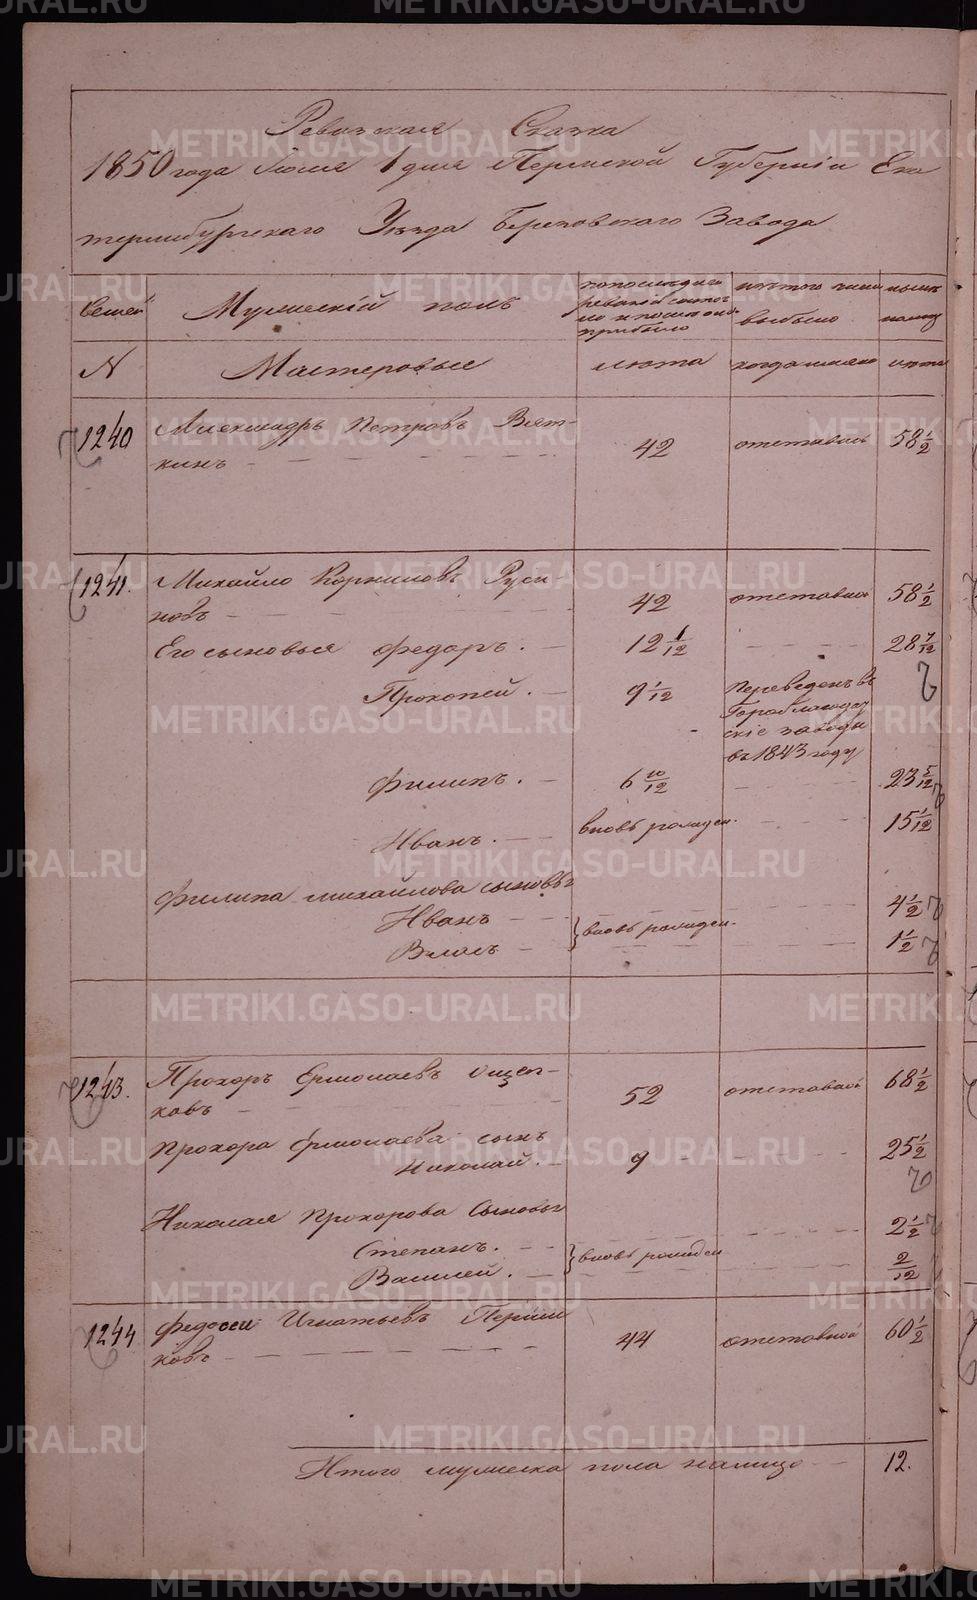 Ревизская Сказка
1850 года Июля 1 дня Пермской Губернiи Ека
теринбургскаго Уѣзда Березовскаго Завода
Семей Мужескiй полъ по последней ревизiи состояло и после оной прибыло изъ того числа выбыло нынѣ налицо
N Мастеровые лѣта когда именно лѣта
1240 Александръ Петровъ Вят-
кинъ 42 отставной 58 1/2
1241. Михайло Корниловъ Руси-
новъ 42 отставной 58 1/2
Его сыновья Федоръ. 12 1/12 28 7/12
Прокопей. 9 1/12 Переведенъ въ
Гороблагодат
скiе заводы
въ 1843 году
Филипъ. 6 10/12 23 5/12
Иванъ. вновь рожден. 15 1/12
Филипа Михайлова сыновья
Иванъ } вновь рожден. 4 1/2
Власъ 1 1/2
1243. Прохоръ Ермолаевъ Още-
ковъ 52 отставной 68 1/2
Прохора Ермолаева сынъ
Николай. 9 25 1/2
Николая Прохорова Сыновья
Степанъ. } вновь рожден 2 1/2
Василей. 2/12
1244 Федосей Игнатьевъ Перши
ковъ 44 отставной 60 1/2
Итого мужеска пола налицо 12.
METRIKI.GASO-URAL.RU